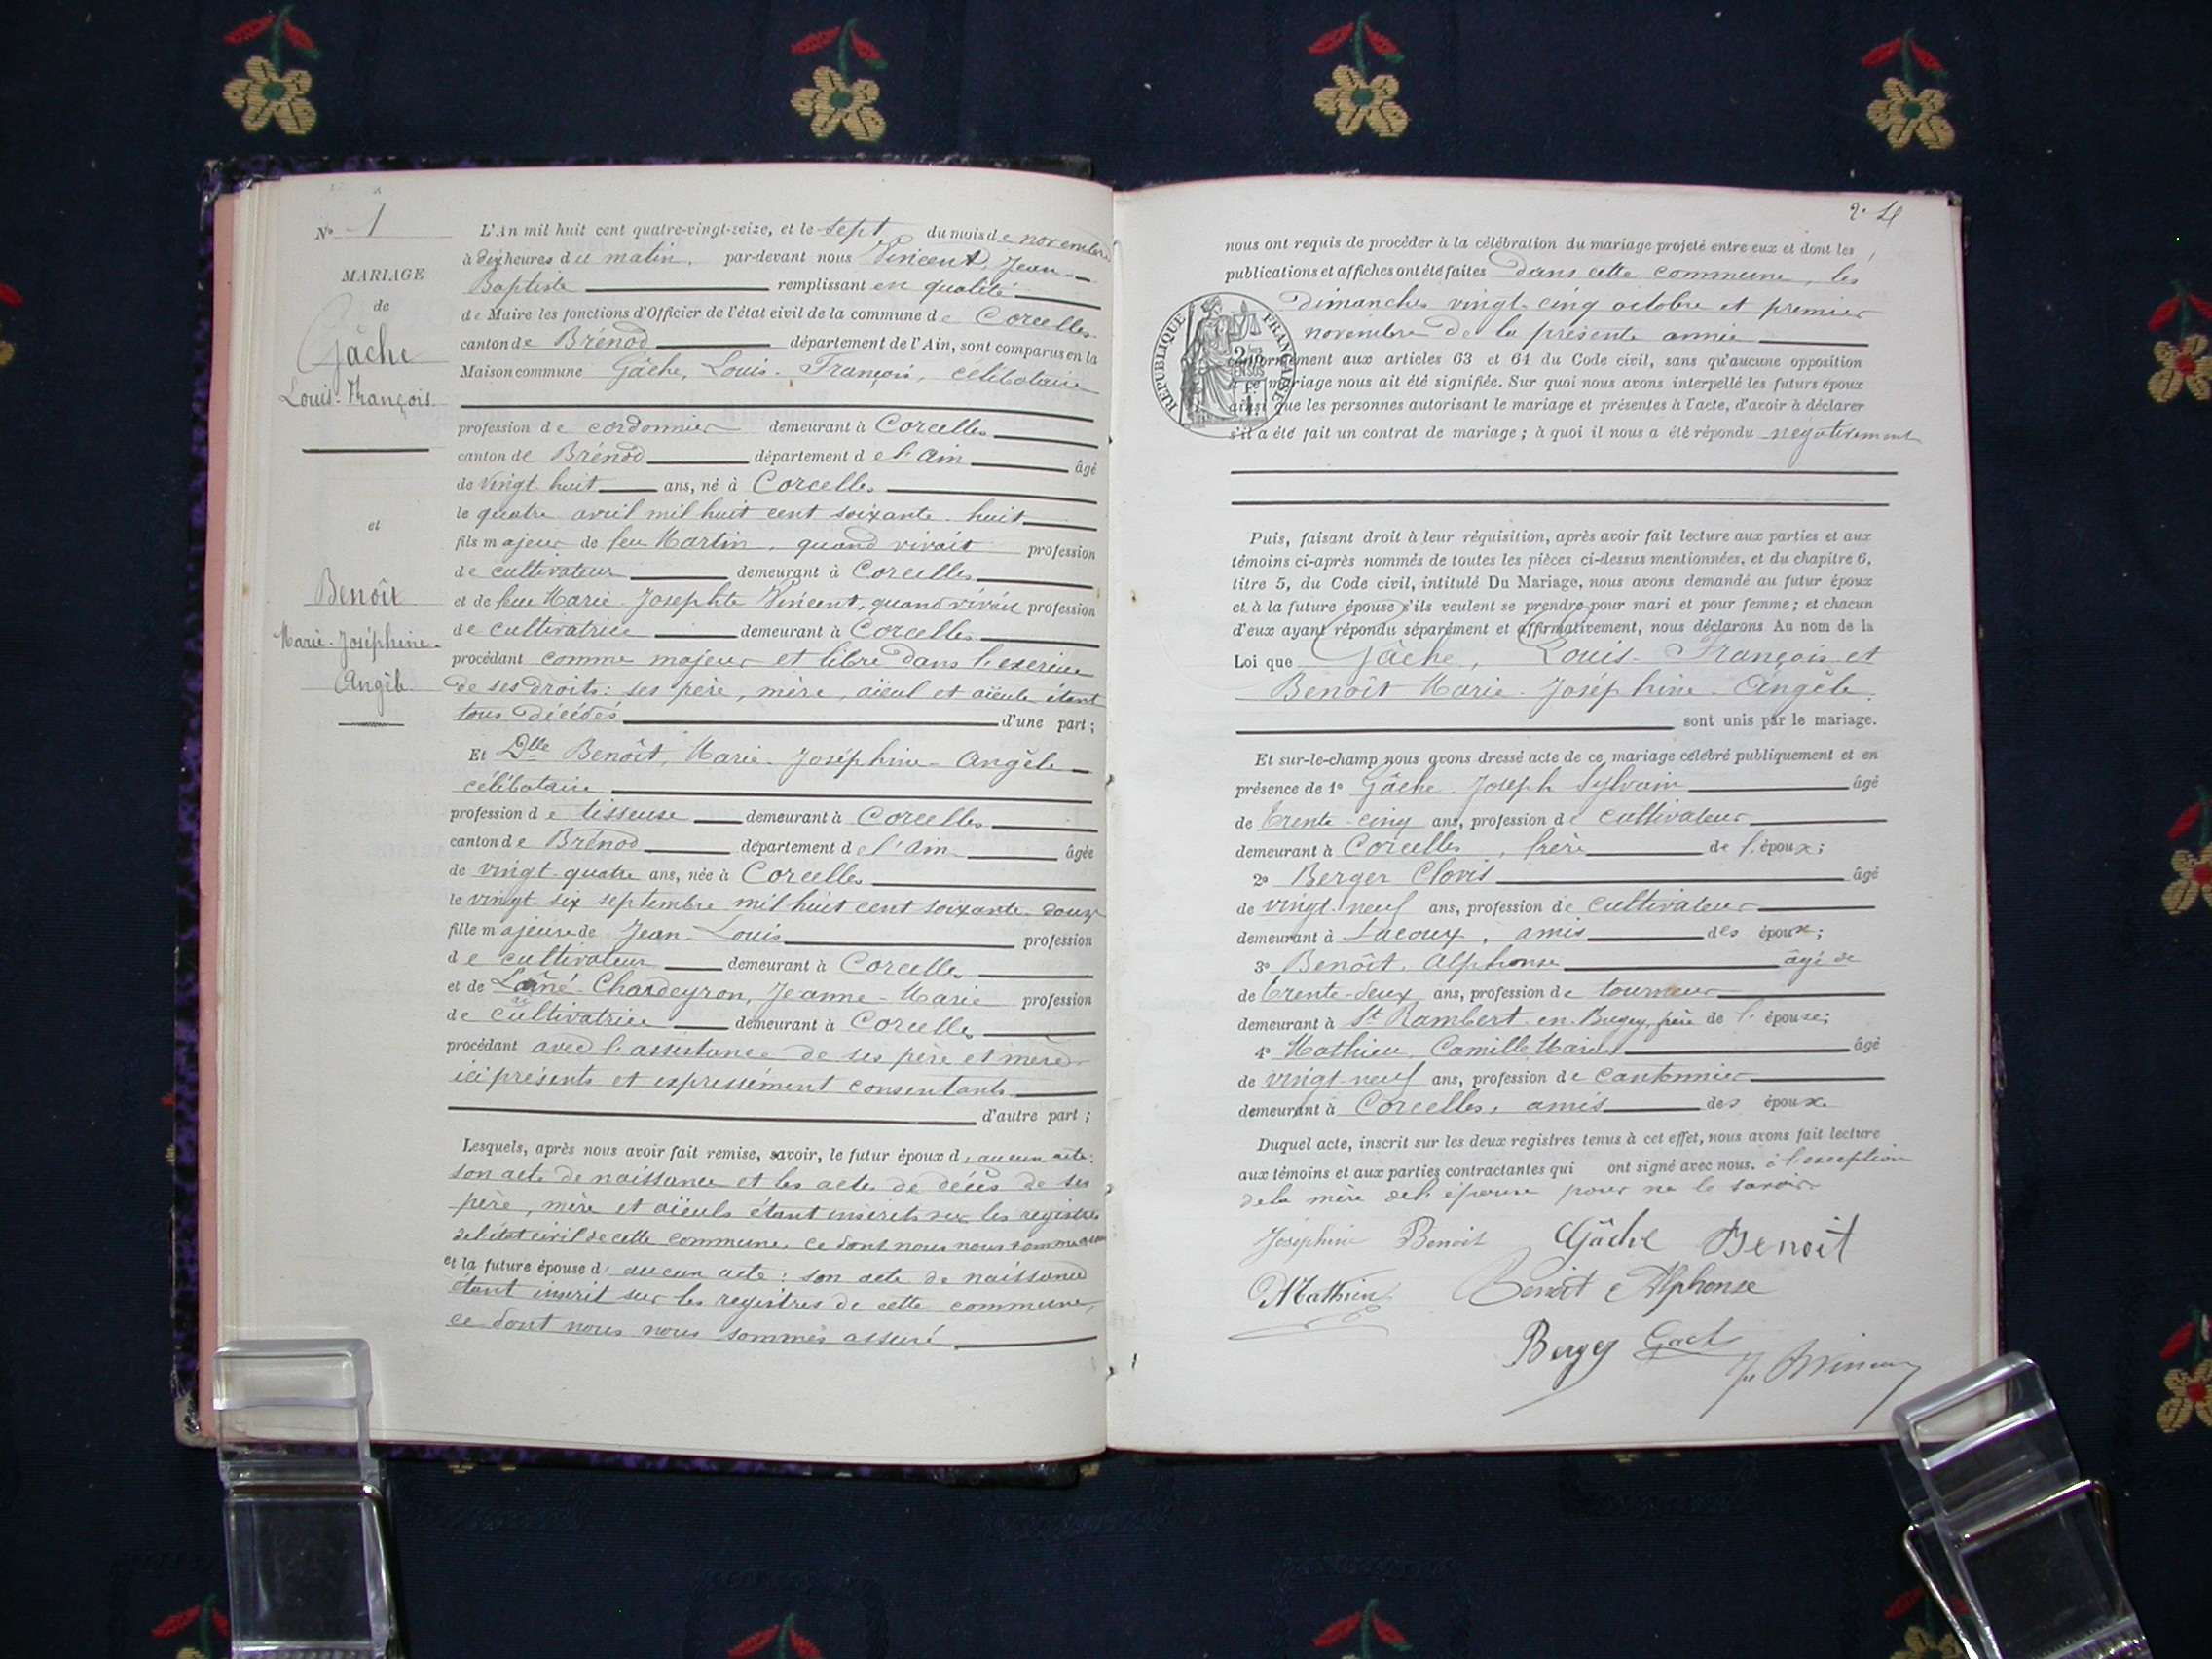 N° 1
MARIAGE
de
Gâche
Louis-François
et
Benoît
Marie-Joséphine-
Angèle
L'An mil huit cent quatre-vingt-seize, et le sept du mois de novembre
à dix heures du matin, par-devant nous Vincent, Jean-
Baptiste remplissant en qualité
de Maire les fonctions d'Officier de l'état civil de la commune de Corcelles
canton de Brénod département de l'Ain, sont comparus en la
Maison commune Gâche, Louis-François, célibataire
profession de cordonnier demeurant à Corcelles
canton de Brénod département de l'Ain âgé
de vingt-huit ans, né à Corcelles
le quatre avril mil huit cent soixante-huit
fils majeur de feu Martin, quand vivait profession
de cultivateur demeurant à Corcelles
et de feue Marie-Josephte Vincent, quand vivait profession
de cultivatrice demeurant à Corcelles
procédant comme majeur et libre dans l'exercice
de ses droits: ses père, mère, aïeul et aïeule étant
tous décédés d'une part;
Et Dlle Benoît, Marie-Joséphine-Angèle
célibataire
profession de tisseuse demeurant à Corcelles
canton de Brénod département de l'Ain âgée
de vingt-quatre ans, née à Corcelles
le vingt-six septembre mil huit cent soixante-douze
fille majeure de Jean-Louis profession
de cultivateur demeurant à Corcelles
et de Lainé-Chardeyron, Jeanne-Marie profession
de cultivatrice demeurant à Corcelles
procédant avec l'assistance de ses père et mère
ici présents et expressément consentants
d'autre part;
Lesquels, après nous avoir fait remise, savoir, le futur époux d'aucun acte:
son acte de naissance et les acte de décès de ses
père, mère et aïeuls étant inscrits sur les registres
de l'état civil de cette commune, ce dont nous nous sommes
et la future épouse d'aucun acte: son acte de naissance
étant inscrit sur les registres de cette commune,
ce dont nous nous sommes assuré
nous ont requis de procéder à la célébration du mariage projeté entre eux et dont les
publications et affiches ont été faites dans cette commune, les
dimanches vingt-cinq octobre et premier
novembre de la présente année
RÉPUBLIQUE FRANÇAISE
conformément aux articles 63 et 64 du Code civil, sans qu'aucune opposition
à ce mariage nous ait été signifiée. Sur quoi nous avons interpellé les futurs époux
ainsi que les personnes autorisant le mariage et présentes à l'acte, d'avoir à déclarer
s'il a été fait un contrat de mariage; à quoi il nous a été répondu négativement
Puis, faisant droit à leur réquisition, après avoir fait lecture aux parties et aux
témoins ci-après nommés de toutes les pièces ci-dessus mentionnées, et du chapitre 6,
titre 5, du Code civil, intitulé Du Mariage, nous avons demandé au futur époux
et à la future épouse s'ils veulent se prendre pour mari et pour femme; et chacun
d'eux ayant répondu séparément et affirmativement, nous déclarons Au nom de la
Loi que Gâche, Louis-François et
Benoît Marie-Joséphine-Angèle
sont unis par le mariage.
Et sur-le-champ nous avons dressé acte de ce mariage célébré publiquement et en
présence de 1° Gâche Joseph Sylvain âgé
de trente-cinq ans, profession de cultivateur
demeurant à Corcelles, frère de l'époux;
2° Berger Clovis âgé
de vingt-neuf ans, profession de cultivateur
demeurant à Lacoux, amis des époux;
3° Benôit, Alphonse âgé de
de trente-deux ans, profession de tourneur
demeurant à St Rambert-en-Bugey, de l'épouse;
4° Mathieu, Camille âgé
de vingt-neuf ans, profession de cantonnier
demeurant à Corcelles, amis des époux.
Duquel acte, inscrit sur les deux registres tenus à cet effet, nous avons fait lecture
aux témoins et aux parties contractantes qui ont signé avec nous. à l'exception
de la mère de l'épouse pour ne le savoir
Joséphine Benoit Gâche Benoit
Mathieu Benoit Alphonse
Berger Gache